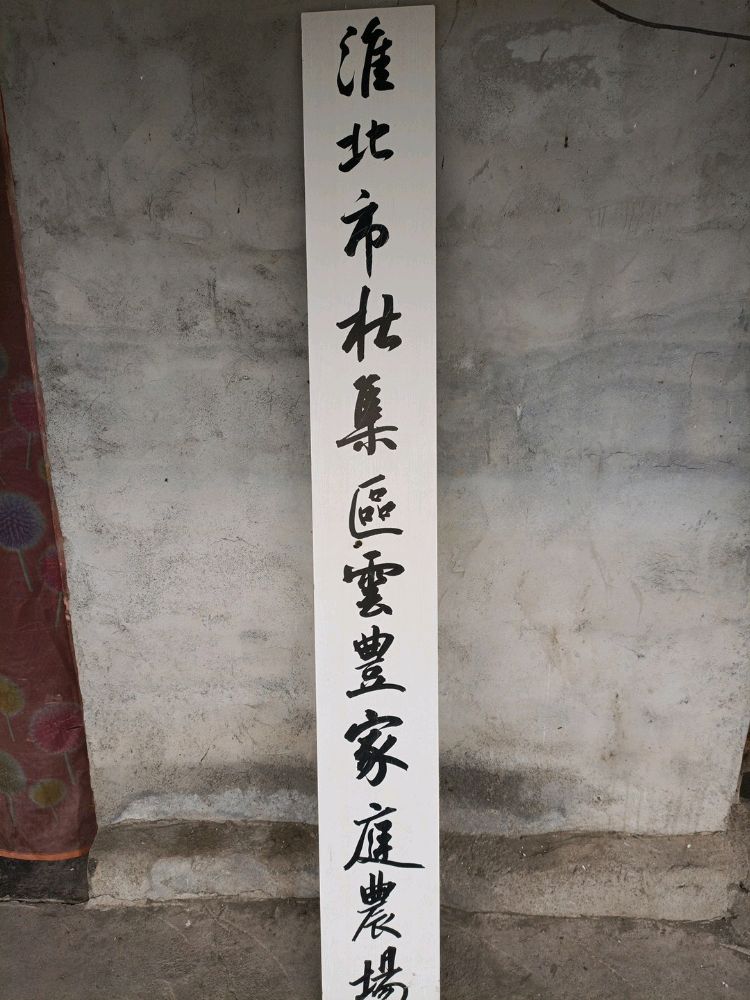 淮北市杜集區雲豊家庭農場